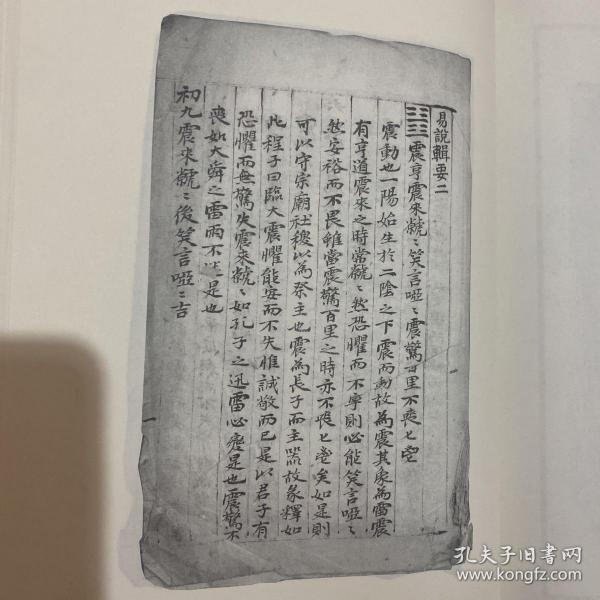 易說輯要二
䷲震亨震來虩〻笑言啞〻震驚百里不喪匕鬯
震動也一陽始生於二陰之下震而動故為震其象為雷震
有亨道震來之時當虩〻然恐懼而不寧則必能笑言啞〻
然安裕而不畏雖當震驚百里之時亦不喪匕鬯矣如是則
可以守宗廟社稷以為祭主也震為長子而主器故彖釋如
此程子曰臨大震懼能安而不失惟誠敬而已是以君子有
恐懼而無驚失震來虩〻如孔子之迅雷必變是也震驚不
喪如大舜之雷雨不迷是也
初九震來虩〻後笑言啞〻吉
孔夫子旧书网
www.kongfz.com